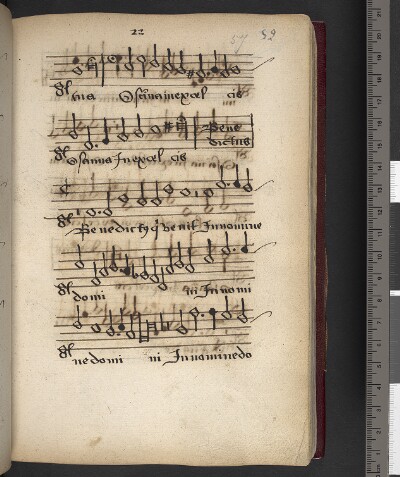 22
tua Osanna inexcel cis
Osanna Inexcel cis
Bene
dictus
Benedictus q venit Innomine
domi ni Innomi
ne domi ni Innominedo